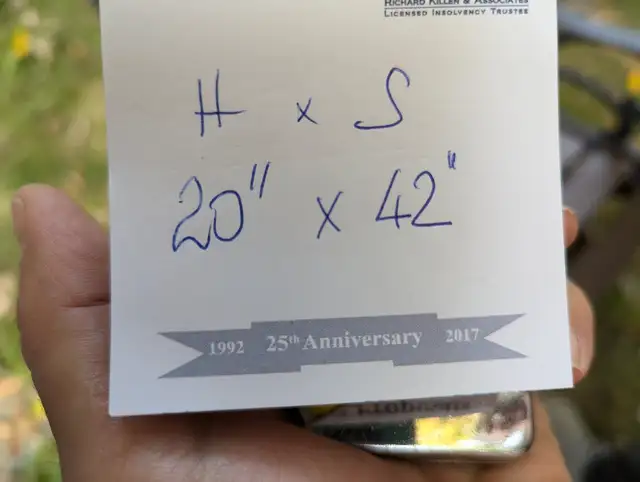 RICHARD KILLEN & ASSOCIATES
LICENSED INSOLVENCY TRUSTEE
H x S
20" x 42"
1992 25th Anniversary 2017